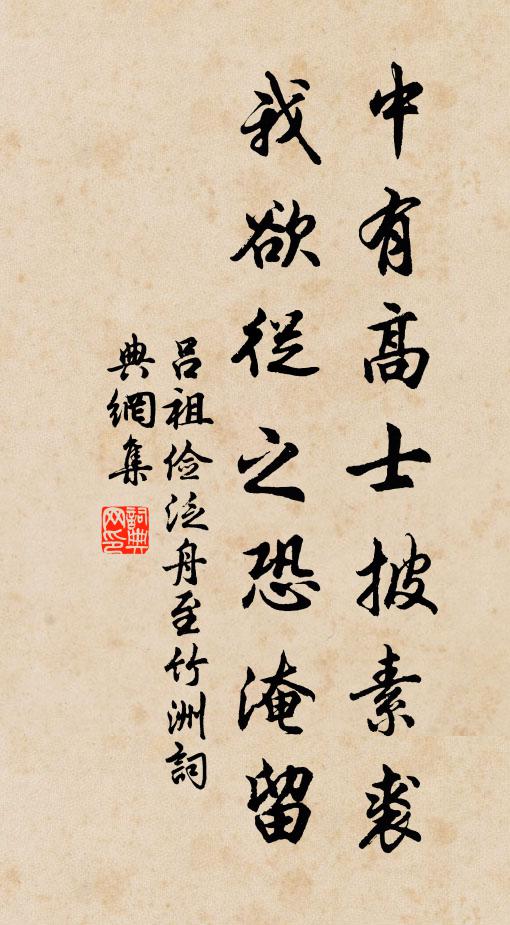 中有高士披素裘
我欲從之恐淹留
呂祖儉泛舟至竹洲詞
典網集
詞典
网印